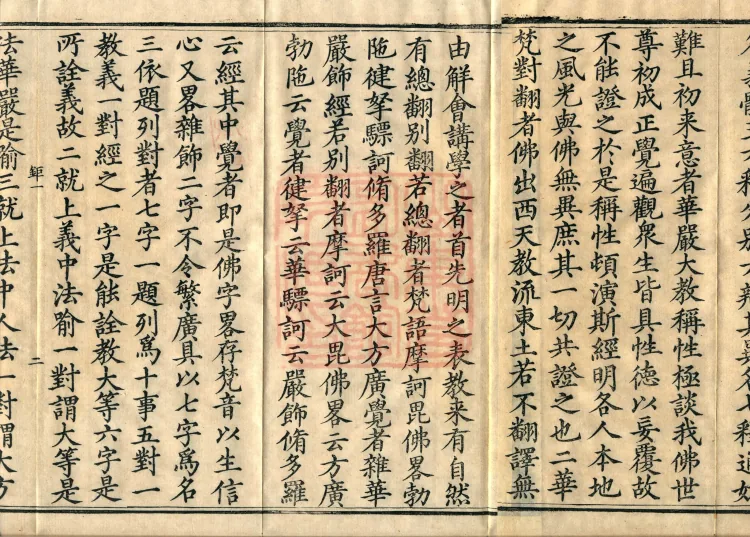 難且初来意者華嚴大教稱性極談我佛世
尊初成正覺遍觀衆生皆具性德以妄覆故
不能證之於是稱性頓演斯經明各人本地
之風光與佛無異庶其一切共證之也二華
梵對翻者佛出西天教流東土若不翻譯無
由解會講學之者首先明之表教来有自然
有總翻别翻若總翻者梵語摩訶毘佛畧勃
陁徤拏驃訶脩多羅唐言大方廣覺者雜華
嚴飾經若别翻者摩訶云大毘佛畧云方廣
勃陁云覺者徤拏云華驃訶云嚴飾脩多羅
云經其中覺者即是佛字畧存梵音以生信
心又畧雜飾二字不令繁廣具以七字爲名
三依題列對者七字一題列爲十事五對一
教義一對經之一字是能詮教大等六字是
所詮義故二就上義中法喻一對謂大等是
二
法華嚴是喻三就上去中人去一對謂大方